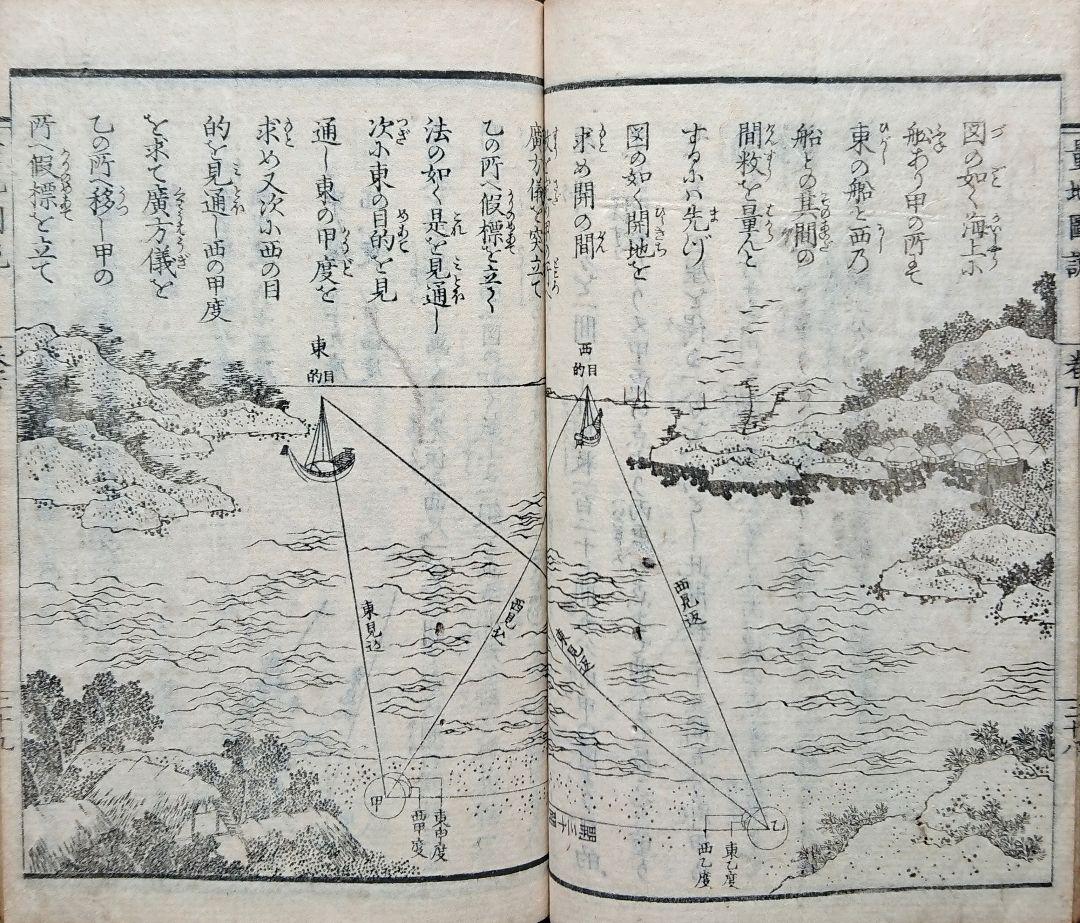 量地圖説
卷下
三十八
図の如く海上に
船あり甲の所より
東の船と西乃
船との其間の
間数を量んと
するにハ先づ
図の如く開地を
求め開の間
廣方儀を突立て
乙の所へ假標を立く
法の如く是を見通し
次に東の目的を見
通し東の甲度を
求め又次に西の目
的を見通し西の甲度
を求て廣方儀を
乙の所へ移し甲の
所へ假標を立て
西
目的
東
目的
西見返
東見返
東見返
甲
東甲度
西甲度
間二十
乙
東乙度
西乙度